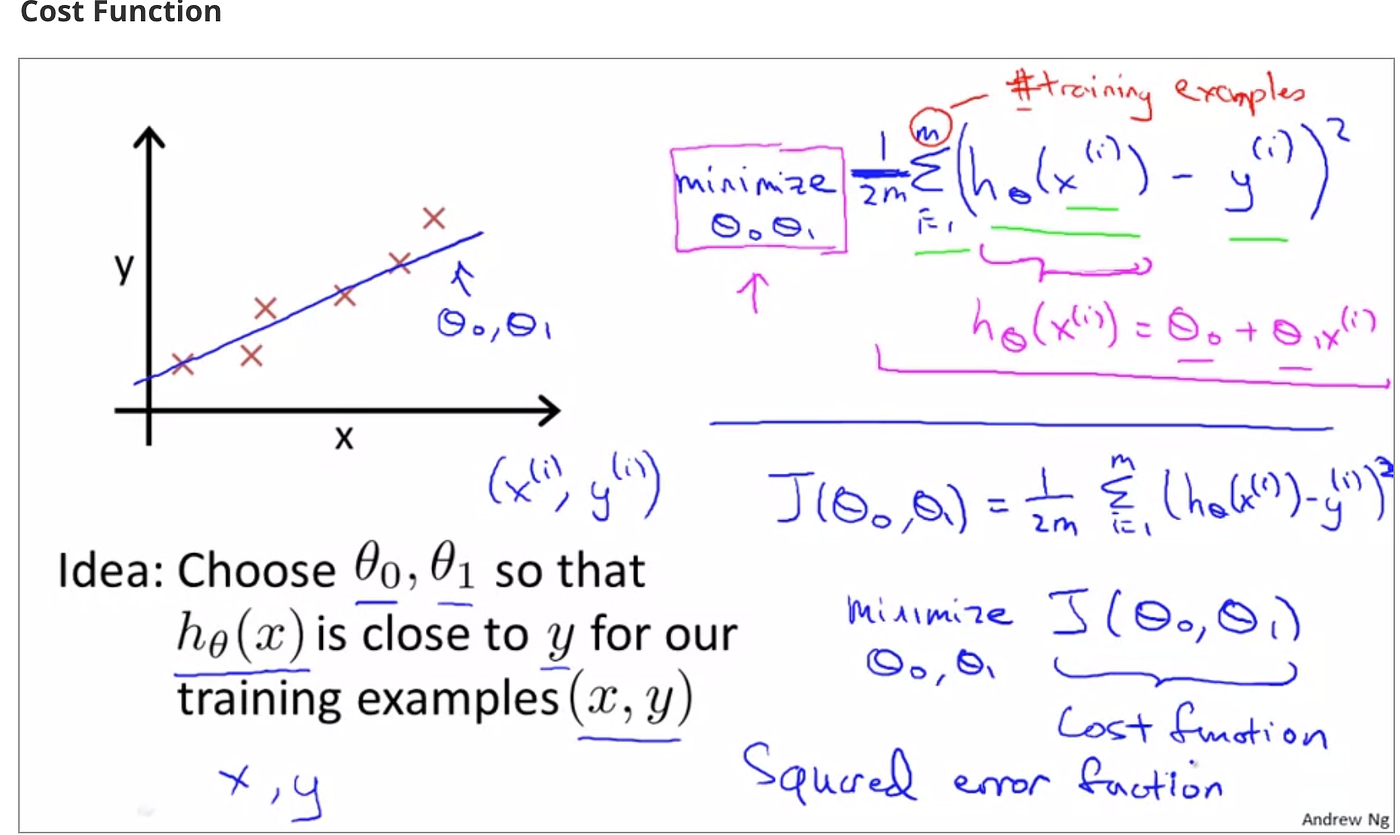 Cost Function
#training examples
minimize
θ₀ θ₁
1/2m m Σ i=1 (hθ(x⁽ⁱ⁾) - y⁽ⁱ⁾)²
y
θ₀, θ₁
hθ(x⁽ⁱ⁾) = θ₀ + θ₁x⁽ⁱ⁾
x
(x⁽ⁱ⁾, y⁽ⁱ⁾)
J(θ₀, θ₁) = 1/2m m Σ i=1 (hθ(x⁽ⁱ⁾) - y⁽ⁱ⁾)²
Idea: Choose θ₀, θ₁ so that
hθ(x) is close to y for our
training examples (x, y)
x, y
minimize J(θ₀, θ₁)
θ₀, θ₁
Cost function
Squared error faction
Andrew Ng